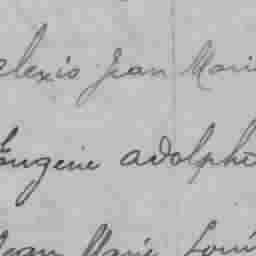 Alexis Jean Marie
Eugène Adolphe
Jean Marie Louis